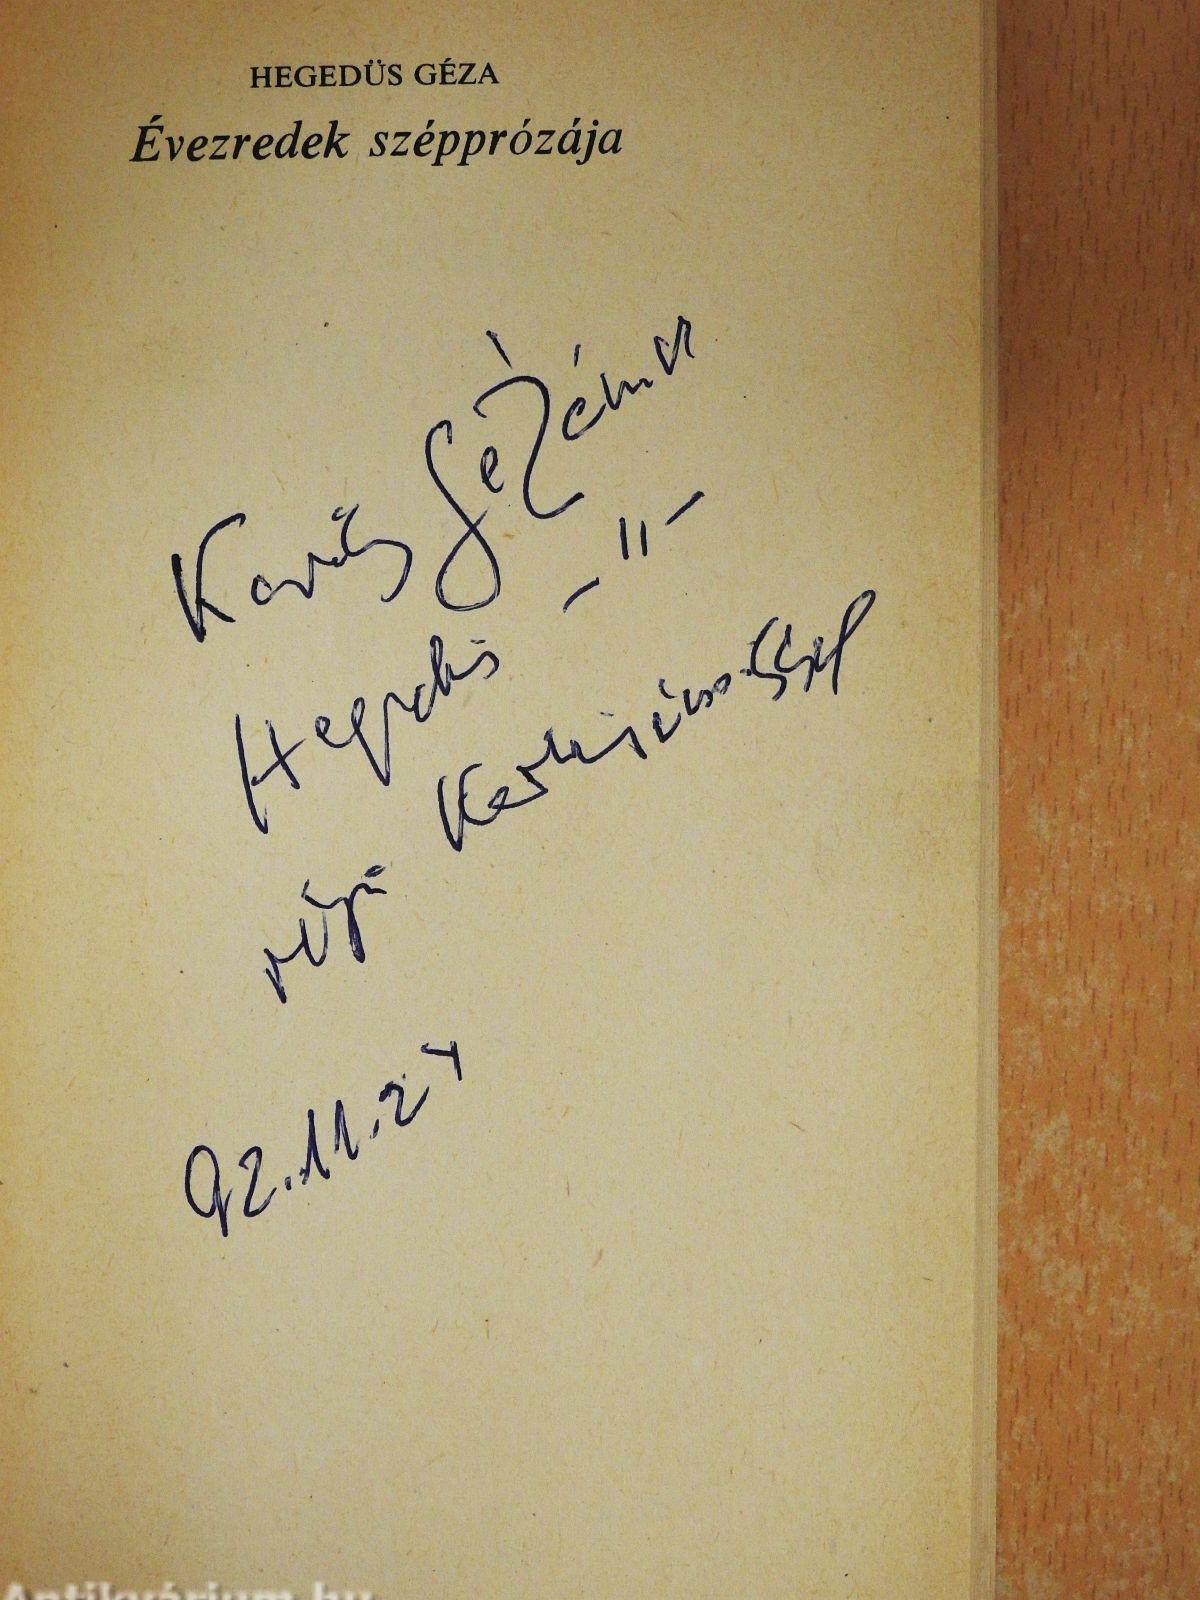 HEGEDÜS GÉZA
Évezredek szépprózája
Kovács Gézának
Hegedüs – " –
régi
92.11.24
Antikvárium.hu